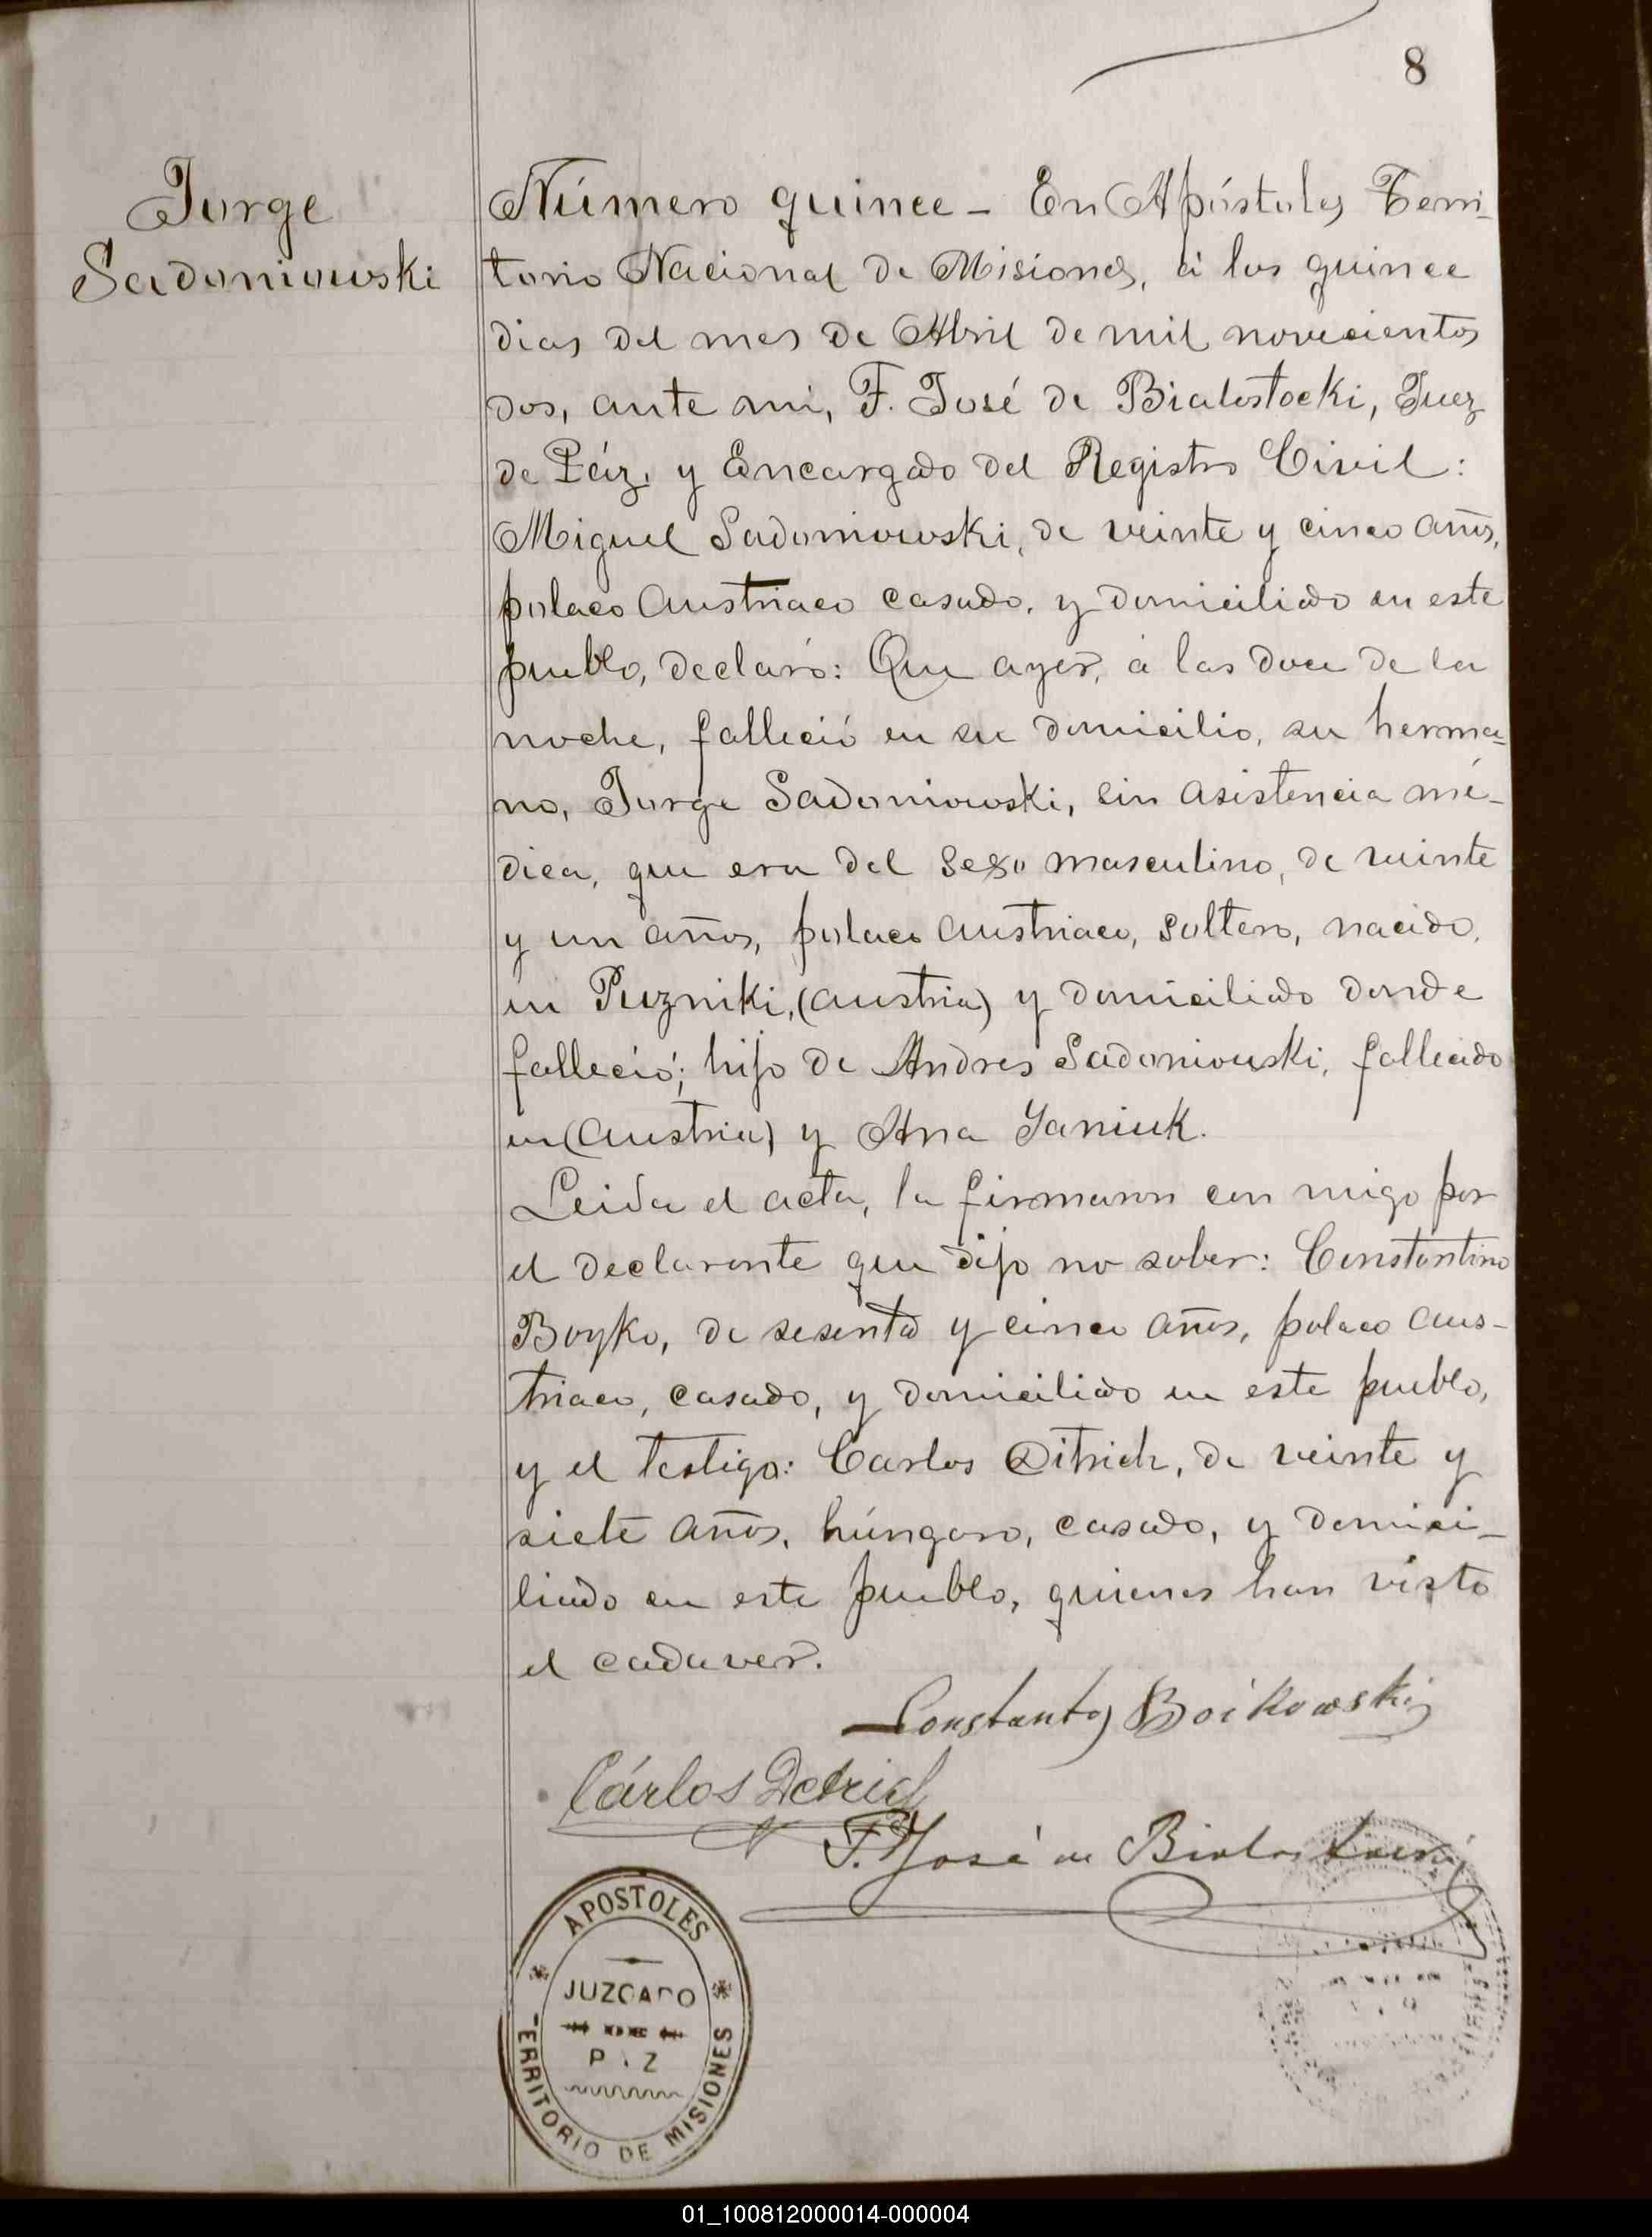 8
Jorge
Sadoniowski
Número quince - En Apóstoles Terri-
torio Nacional de Misiones, á los quince
dias del mes de Abril de mil novecientos
dos, ante mi, F. José de Bialostocki, Juez
de Páz, y Encargado del Registro Civil:
Miguel Sadoniowski, de veinte y cinco años,
polaco austriaco casado, y domiciliado en este
pueblo, declaró: Que ayer, á las doce de la
noche, falleció en su domicilio, su herma-
no, Jorge Sadoniowski, sin asistencia mé-
dica, que era del sexo masculino, de veinte
y un años, polaco austriaco, soltero, nacido,
en Puzniki, (austria) y domiciliado donde
falleció; hijo de Andres Sadoniowski, fallecido
en (austria) y Ana Yaniuk.
Leida el acta, la firmaron con migo por
el declarante que dijo no saber: Constantino
Boyko, de sesenta y cinco años, polaco aus-
triaco, casado, y domiciliado en este pueblo,
y el testigo: Carlos Ditrich, de veinte y
siete años, húngaro, casado, y domici-
liado en este pueblo, quienes han visto
el cadaver.
Constanty Boikowski
Cárlos Detrich
F. José de Bialostocki
APOSTOLES
JUZGADO
DE
PAZ
TERRITORIO DE MISIONES
01_100812000014-000004